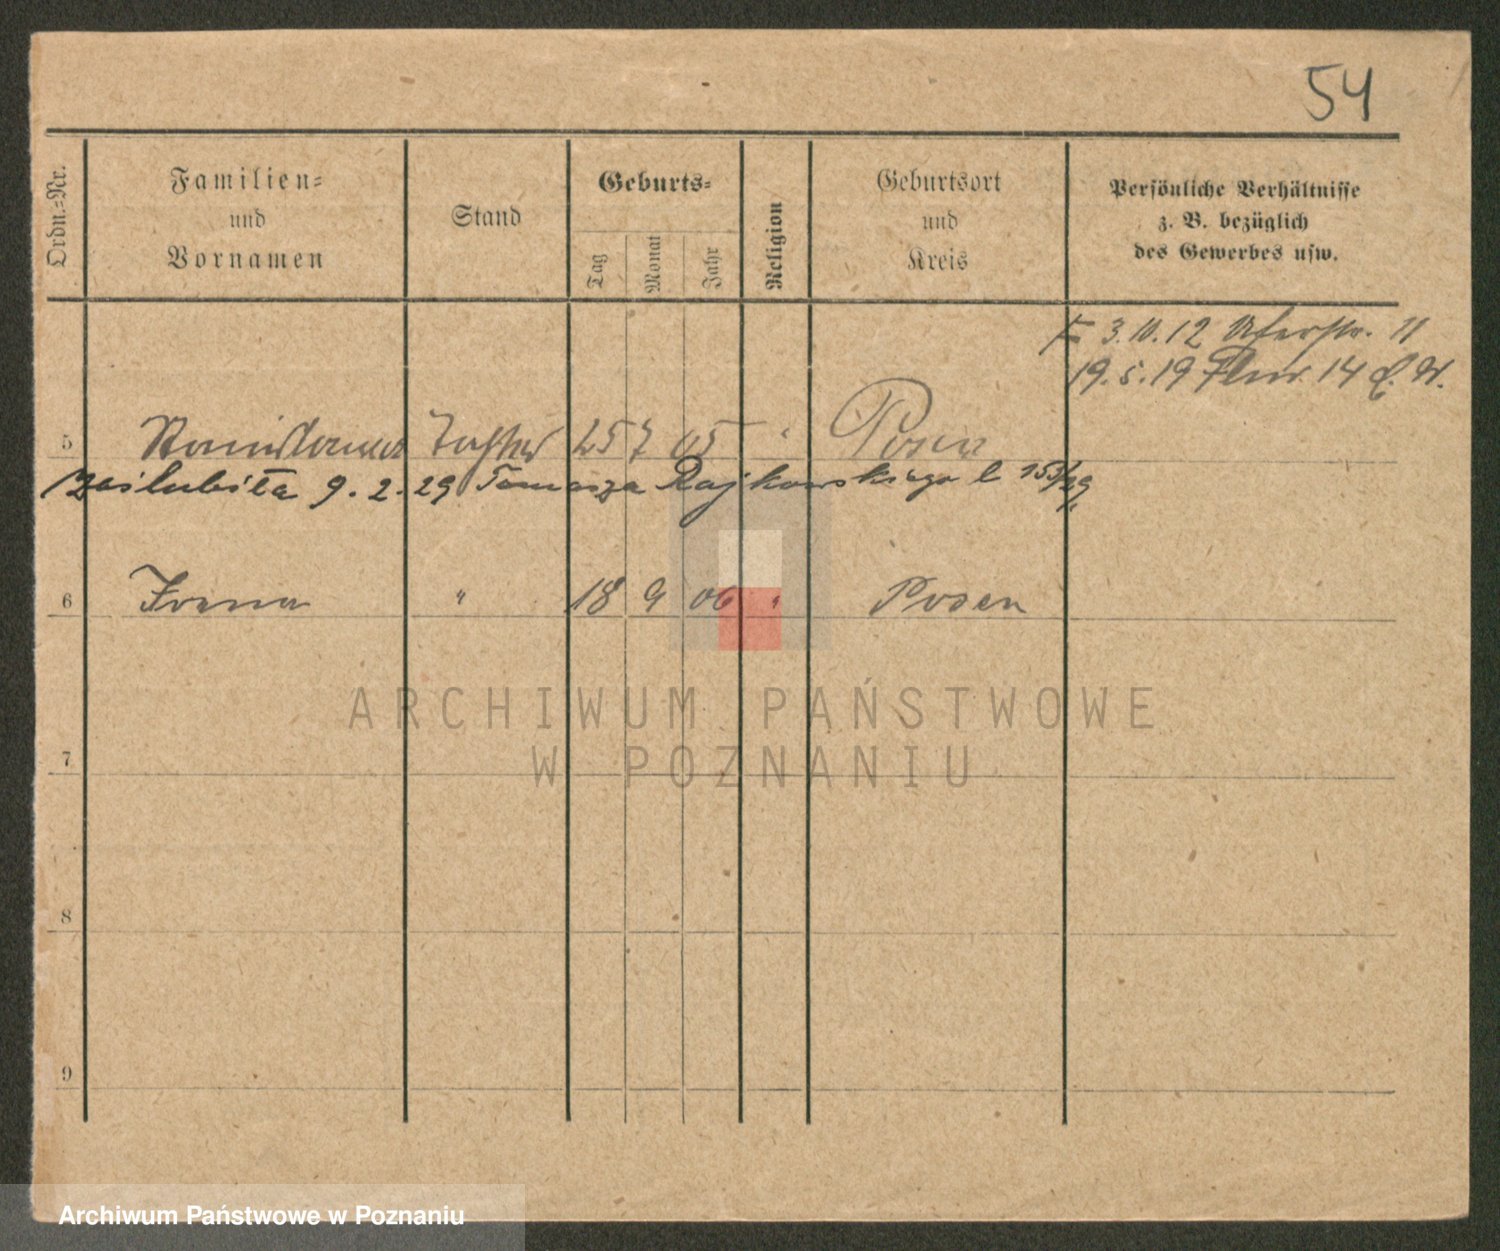 54
Ordn.-Nr.
Familien-
und
Vornamen
Stand
Geburts-
Tag
Monat
Jahr
Religion
Geburtsort
und
Kreis
Persönliche Verhältnisse
z. B. bezüglich
des Gewerbes usw.
3.10.12 Uferstr. 11
19.5.19 14
5 Stanislawa Tochter 25 7 05 " Posen
zaślubiła 9.2.29 Tomasza Rajkowskiego
6 Irena " 18 9 06 " Posen
7
8
9
ARCHIWUM PAŃSTWOWE
W POZNANIU
Archiwum Państwowe w Poznaniu